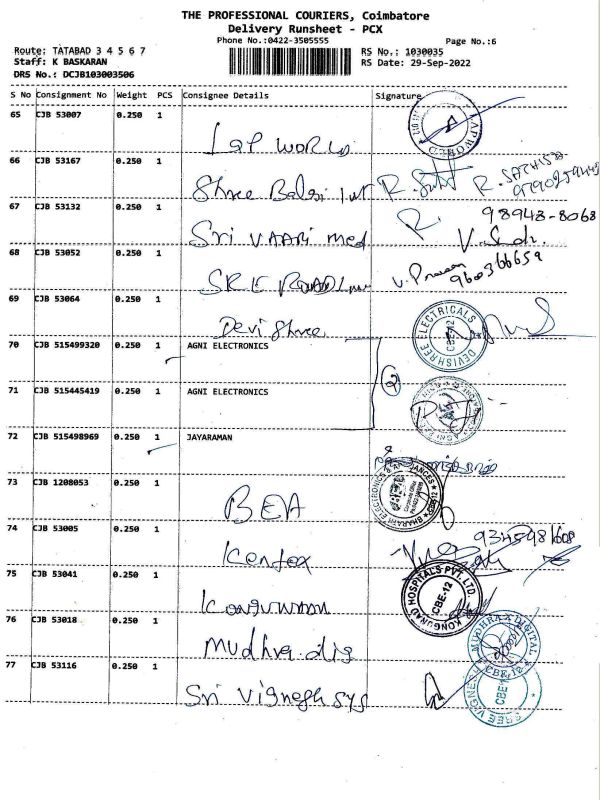 THE PROFESSIONAL COURIERS, Coimbatore
Delivery Runsheet - PCX
Phone No.:0422-3505555
Page No.:6
Route: TATABAD 3 4 5 6 7
RS No.: 1030035
Staff: K BASKARAN
RS Date: 29-Sep-2022
DRS No.: DCJB103003506
S No Consignment No Weight PCS Consignee Details Signature
65 CJB 53007 0.250 1
Lap WORLD
66 CJB 53167 0.250 1
Shree Balaji Int
97902594
67 CJB 53132 0.250 1
R. 98943-8068
Sri VAARI med
68 CJB 53052 0.250 1
9600366659
SRE
69 CJB 53064 0.250 1
Devi Shree
DEVISHREE ELECTRICALS CBE-12
70 CJB 515499320 0.250 1 AGNI ELECTRONICS
71 CJB 515445419 0.250 1 AGNI ELECTRONICS
72 CJB 515498969 0.250 1 JAYARAMAN
73 CJB 1208053 0.250 1
BEA
BHARANI ELECTRONICS & APPLIANCES
74 CJB 53005 0.250 1
Kentex
75 CJB 53041 0.250 1
KONGUNAD HOSPITALS PVT. LTD. CBE-12
76 CJB 53018 0.250 1
Mudhra dig
MUDHRA DIGITAL CBE-12
77 CJB 53116 0.250 1
Sri Vignesh sys
SREE VIGNESH CBE